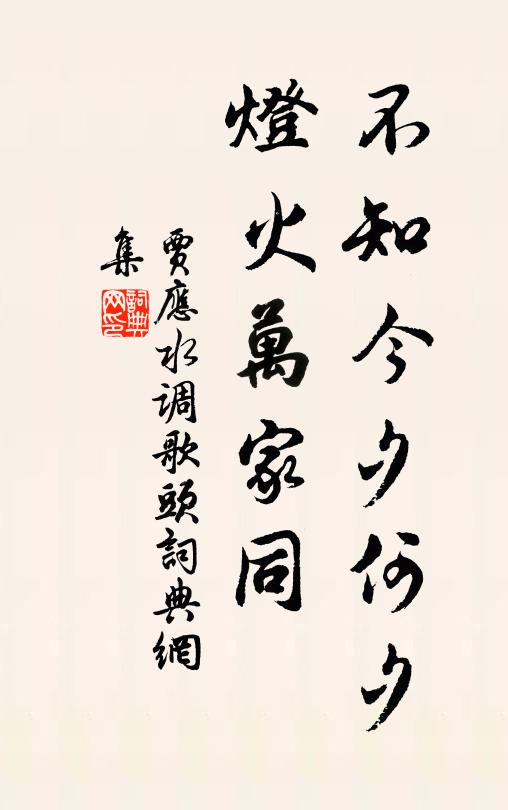 不知今夕何夕
燈火萬家同
賈應水调歌頭詞典網
集
詞典网印